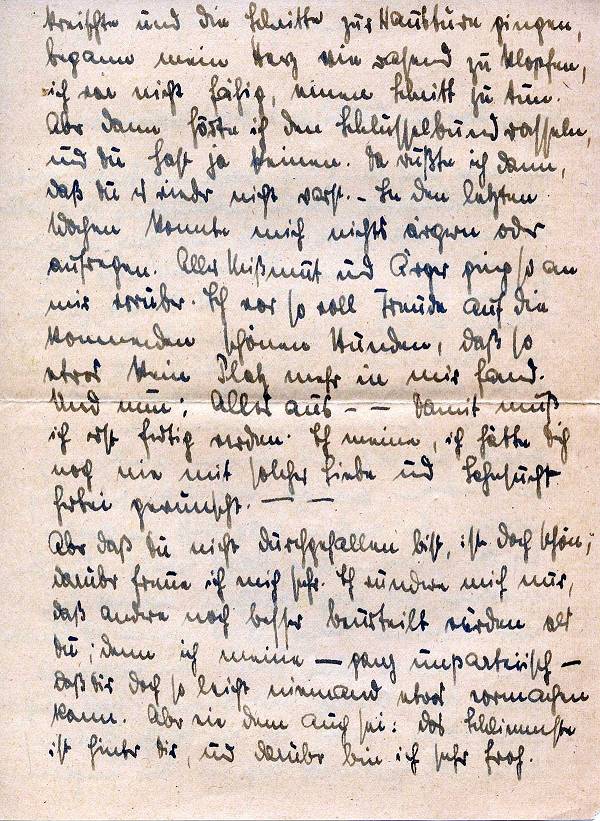 kreischte und die Schritte zur Haustüre gingen,
begann mein Herz wie rasend zu klopfen,
ich war nicht fähig, einen Schritt zu tun.
Aber dann hörte ich den Schlüsselbund rasseln,
und Du hast ja keinen. Da wußte ich dann,
daß Du es wieder nicht warst. – In den letzten
Wochen konnte mich nichts ärgern oder
aufregen. Aller Mißmut und Ärger ging so an
mir vorrüber. Ich war so voll Freude auf die
kommenden schönen Stunden, daß so
etwas kein Platz mehr in mir fand.
Und nun: Alles aus – – Damit muß
ich erst fertig werden. Ich meine, ich hätte Dich
noch nie mit solcher Liebe und Sehnsucht
herbei gewünscht. — —
Aber daß Du nicht durchgefallen bist, ist doch schön;
darüber freue ich mich sehr. Ich wundere mich nur,
daß andere noch besser beurteilt wurden als
Du; denn ich meine – ganz unparteiisch –
daß Dir doch so leicht niemand etwas vormachen
kann. Aber wie dem auch sei: das Schlimmste
ist hinter Dir, und darüber bin ich sehr froh.